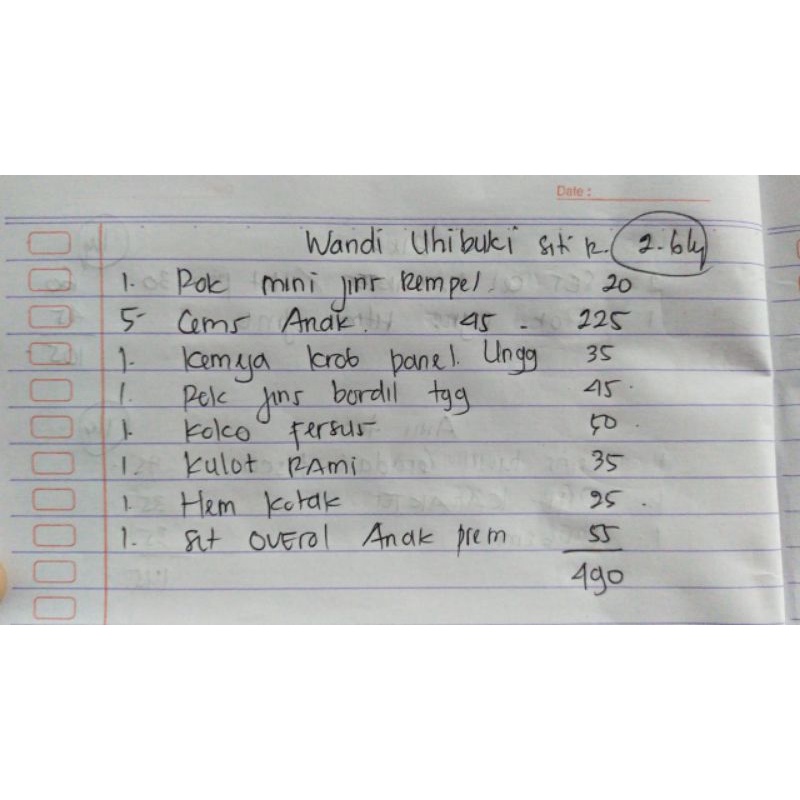 Date :
Wandi Uhibuki siti R. 2. bly
1. Rok mini jins Rempel. 20
5 Cems Anak. 45 - 225
1. Kemeja krob panel Ungg 35
1. Rok jins bordil tgg 45.
1. Koko fersus 50.
1. Kulot RAmi 35
1. Hem kotak 25.
1. Set OVErol Anak prem 55
490